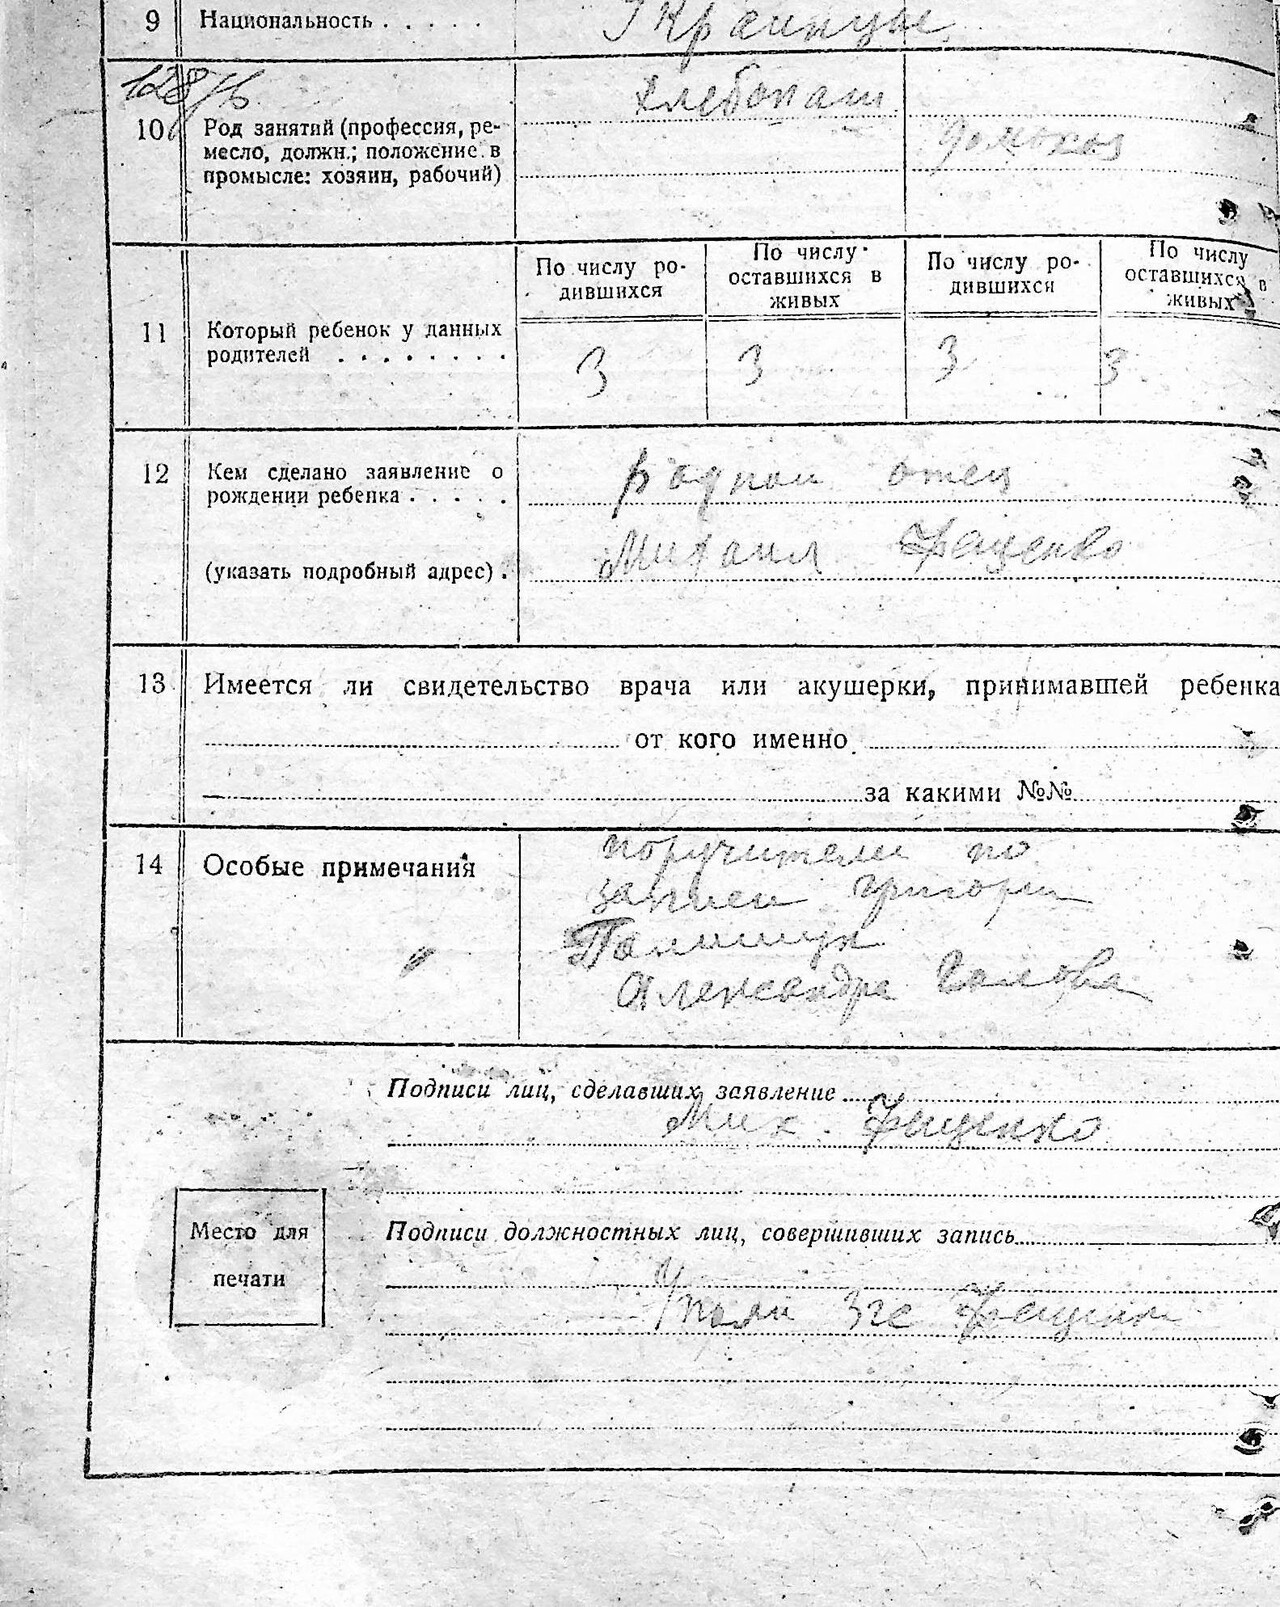 9 Национальность . . . . . Украинцы
128/76
10 Род занятий (профессия, ре-
месло, должн.; положение в
промысле: хозяин, рабочий)
Хлебопаш
домохоз
11 Который ребенок у данных
родителей . . . . . . . .
По числу ро-
дившихся
По числу
оставшихся в
живых
По числу ро-
дившихся
По числу
оставшихся в
живых
3 3 3 3
12 Кем сделано заявление о
рождении ребенка . . . . .
(указать подробный адрес) .
родной отец
Михаил
13 Имеется ли свидетельство врача или акушерки, принимавшей ребенка
от кого именно
за какими №№
14 Особые примечания
поручители по
записи Григори
Александра Голова
Подписи лиц, сделавших заявление
Мих.
Место для
печати
Подписи должностных лиц, совершивших запись